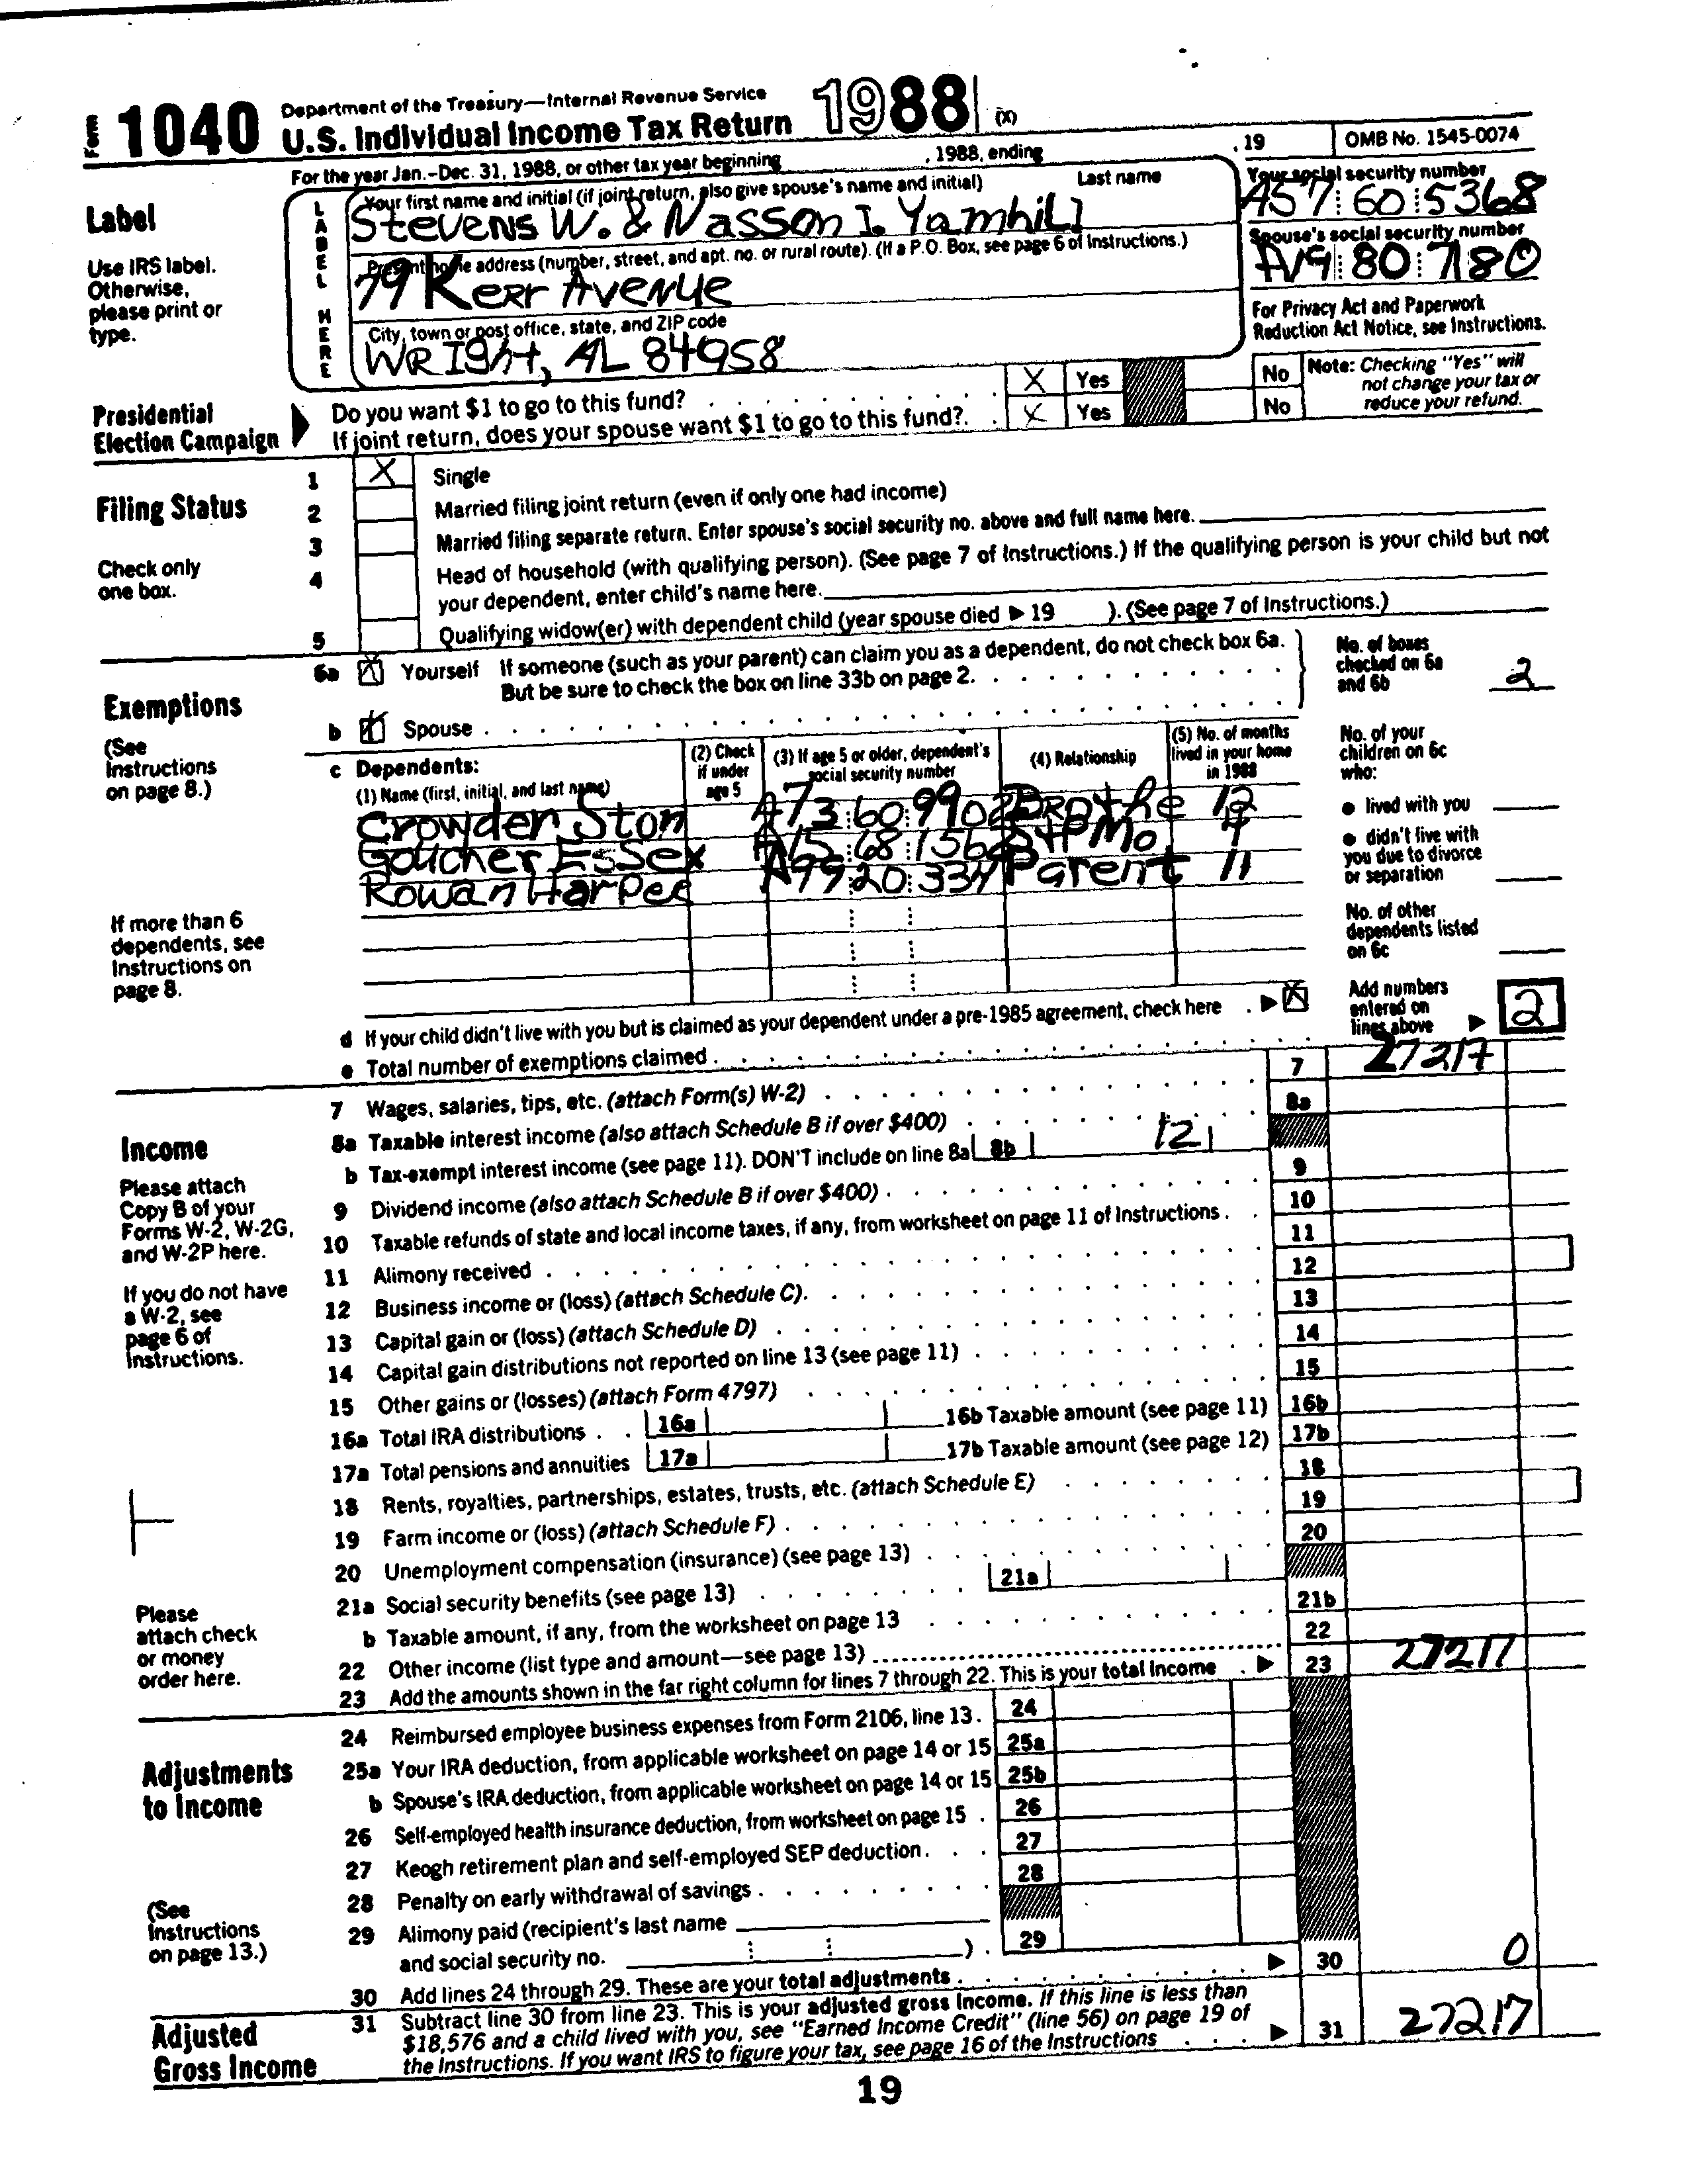 Form 1040 Department of the Treasury—Internal Revenue Service
U.S. Individual Income Tax Return 1988 (X)
For the year Jan.–Dec. 31, 1988, or other tax year beginning , 1988, ending , 19 OMB No. 1545-0074
Label
Use IRS label.
Otherwise,
please print or
type.
LABEL HERE
Your first name and initial (if joint return, also give spouse's name and initial) Last name
Stevens W. & Nasson I. Yamhill
Present home address (number, street, and apt. no. or rural route). (If a P.O. Box, see page 6 of Instructions.)
79 Kerr Avenue
City, town or post office, state, and ZIP code
WRIght, AL 84958
Your social security number
A57 60 5368
Spouse's social security number
80 7180
For Privacy Act and Paperwork
Reduction Act Notice, see Instructions.
Presidential
Election Campaign
Do you want $1 to go to this fund? X Yes No
If joint return, does your spouse want $1 to go to this fund? X Yes No
Note: Checking "Yes" will
not change your tax or
reduce your refund.
Filing Status
Check only
one box.
1 X Single
2 Married filing joint return (even if only one had income)
3 Married filing separate return. Enter spouse's social security no. above and full name here.
4 Head of household (with qualifying person). (See page 7 of Instructions.) If the qualifying person is your child but not
your dependent, enter child's name here.
5 Qualifying widow(er) with dependent child (year spouse died ▶ 19 ). (See page 7 of Instructions.)
Exemptions
(See
Instructions
on page 8.)
6a X Yourself If someone (such as your parent) can claim you as a dependent, do not check box 6a.
But be sure to check the box on line 33b on page 2.
b X Spouse
No. of boxes
checked on 6a
and 6b 2
c Dependents:
(1) Name (first, initial, and last name)
(2) Check
if under
age 5
(3) If age 5 or older, dependent's
social security number
(4) Relationship
(5) No. of months
lived in your home
in 1988
Crowder Ston A73 60 9902 Brothe 12
Goucher Essex A15 68 1562 StPMo 4
Rowan Harper A99 20 334 Parent 11
If more than 6
dependents, see
Instructions on
page 8.
No. of your
children on 6c
who:
● lived with you
● didn't live with
you due to divorce
or separation
No. of other
dependents listed
on 6c
Add numbers
entered on
lines above ▶ 2
d If your child didn't live with you but is claimed as your dependent under a pre-1985 agreement, check here ▶ X
e Total number of exemptions claimed
Income
Please attach
Copy B of your
Forms W-2, W-2G,
and W-2P here.
If you do not have
a W-2, see
page 6 of
Instructions.
Please
attach check
or money
order here.
7 Wages, salaries, tips, etc. (attach Form(s) W-2) 7 27217
8a Taxable interest income (also attach Schedule B if over $400) 8a
b Tax-exempt interest income (see page 11). DON'T include on line 8a 8b 121
9 Dividend income (also attach Schedule B if over $400) 9
10 Taxable refunds of state and local income taxes, if any, from worksheet on page 11 of Instructions 10
11 Alimony received 11
12 Business income or (loss) (attach Schedule C) 12
13 Capital gain or (loss) (attach Schedule D) 13
14 Capital gain distributions not reported on line 13 (see page 11) 14
15 Other gains or (losses) (attach Form 4797) 15
16a Total IRA distributions 16a 16b Taxable amount (see page 11) 16b
17a Total pensions and annuities 17a 17b Taxable amount (see page 12) 17b
18 Rents, royalties, partnerships, estates, trusts, etc. (attach Schedule E) 18
19 Farm income or (loss) (attach Schedule F) 19
20 Unemployment compensation (insurance) (see page 13) 20
21a Social security benefits (see page 13) 21a
b Taxable amount, if any, from the worksheet on page 13 21b
22 Other income (list type and amount—see page 13) 22
23 Add the amounts shown in the far right column for lines 7 through 22. This is your total income ▶ 23 27217
Adjustments
to Income
(See
Instructions
on page 13.)
24 Reimbursed employee business expenses from Form 2106, line 13. 24
25a Your IRA deduction, from applicable worksheet on page 14 or 15 25a
b Spouse's IRA deduction, from applicable worksheet on page 14 or 15 25b
26 Self-employed health insurance deduction, from worksheet on page 15 26
27 Keogh retirement plan and self-employed SEP deduction 27
28 Penalty on early withdrawal of savings 28
29 Alimony paid (recipient's last name
and social security no. ) 29
30 Add lines 24 through 29. These are your total adjustments ▶ 30 0
Adjusted
Gross Income
31 Subtract line 30 from line 23. This is your adjusted gross income. If this line is less than
$18,576 and a child lived with you, see "Earned Income Credit" (line 56) on page 19 of
the Instructions. If you want IRS to figure your tax, see page 16 of the Instructions ▶ 31 27217
19